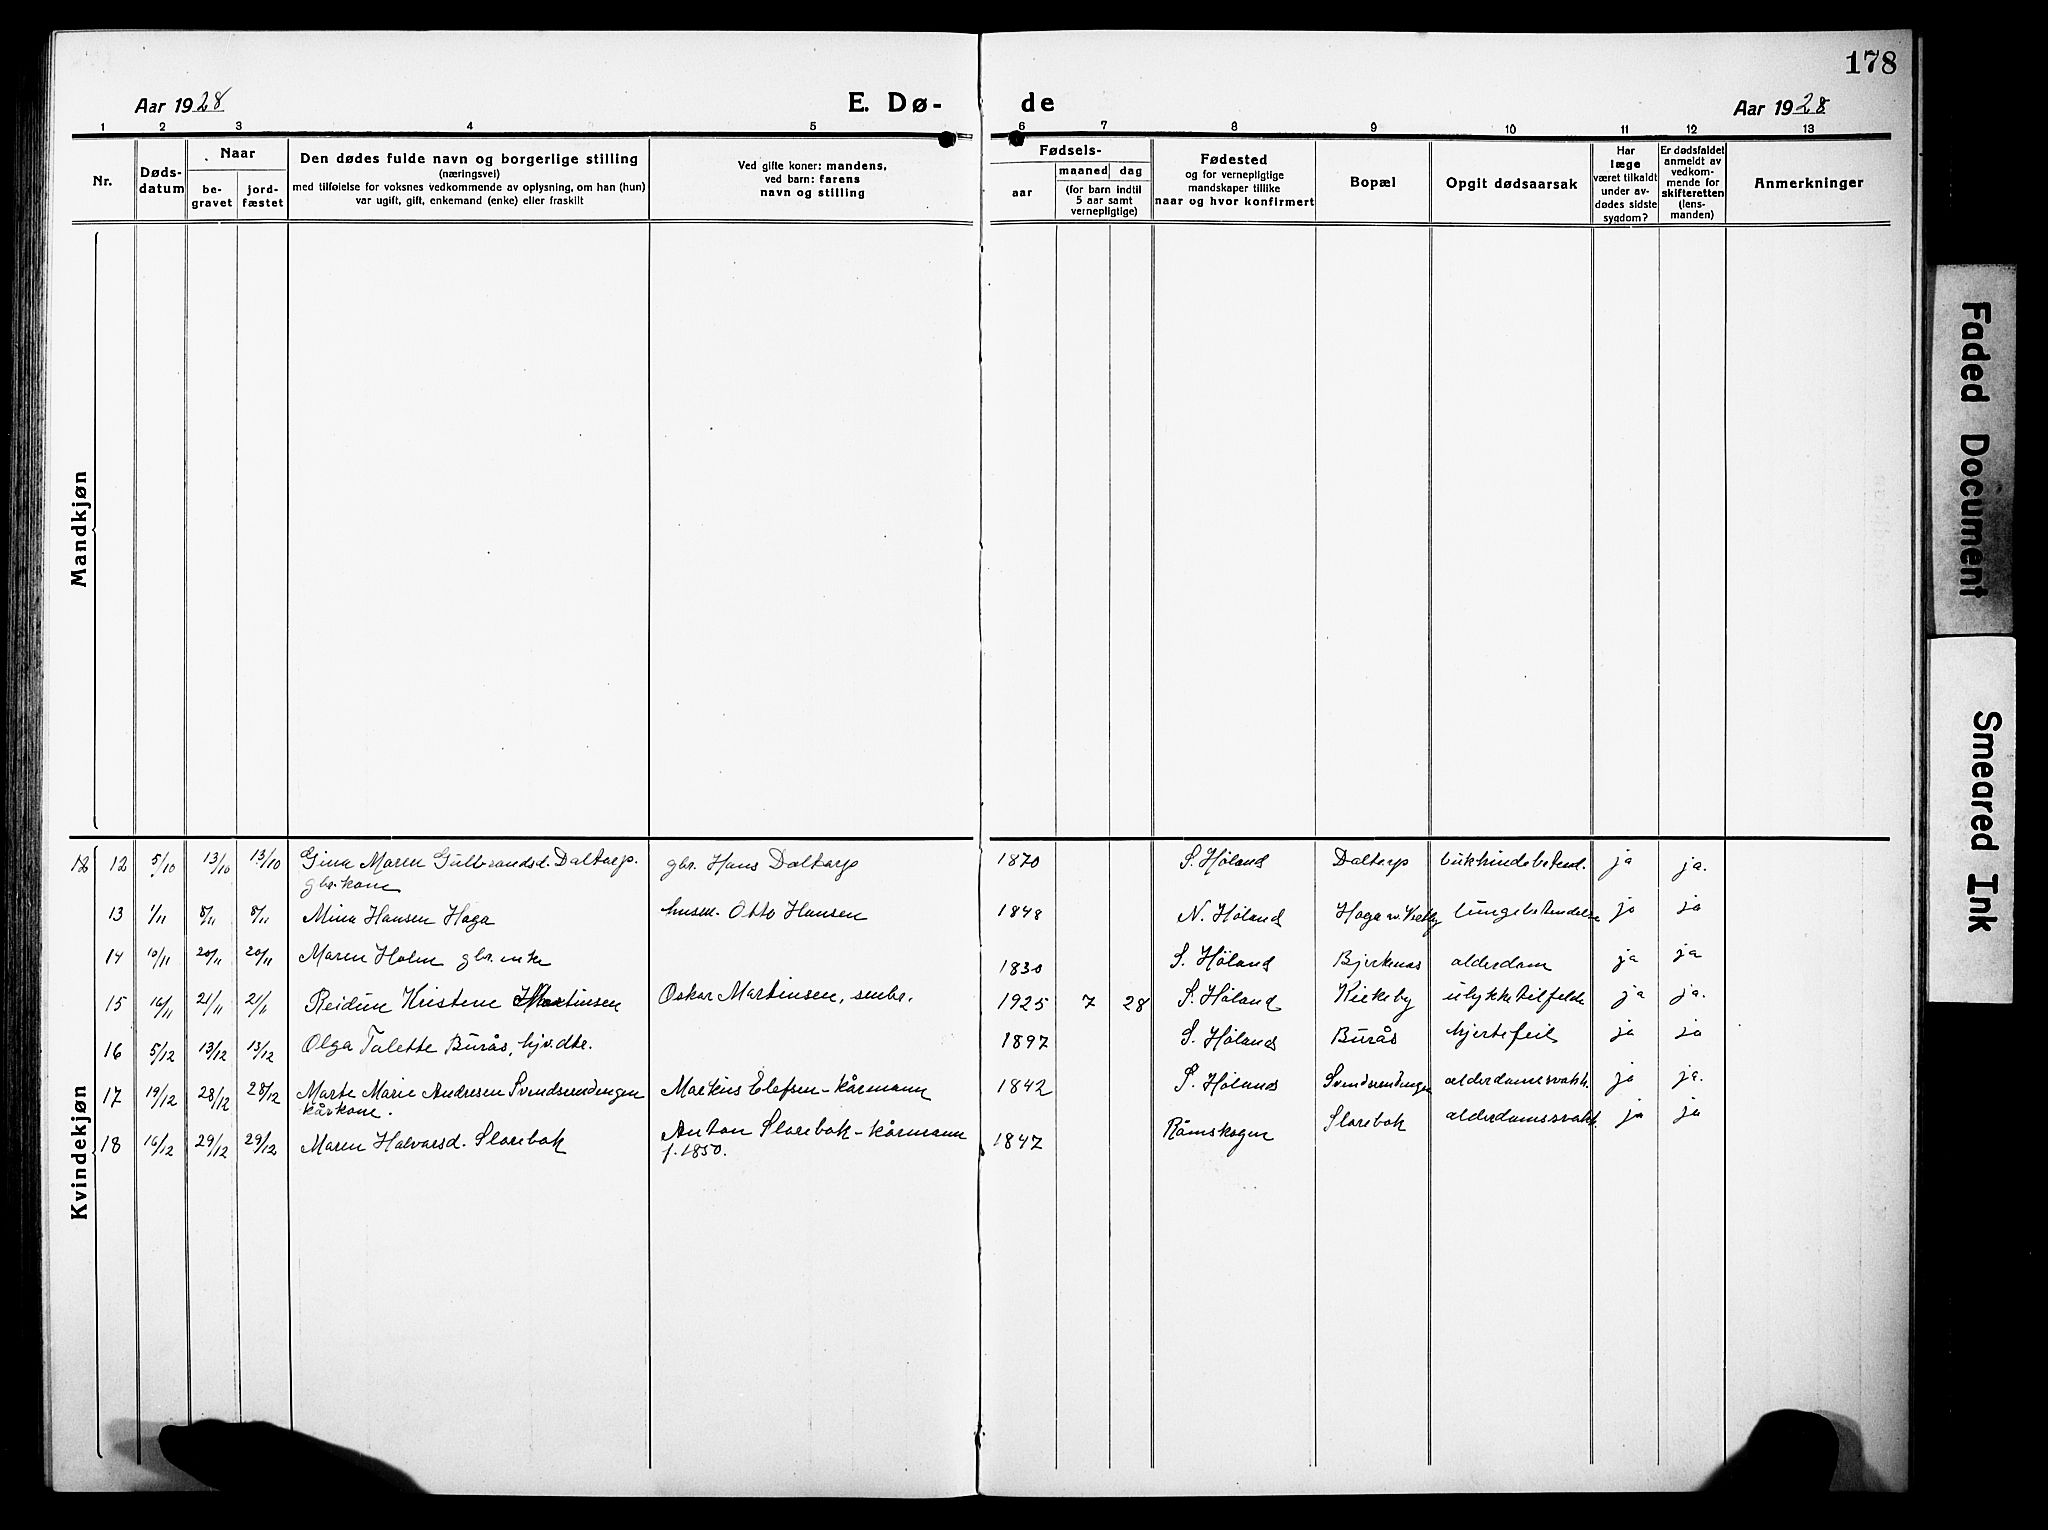 178
Aar 1928
E. Dø-
de
Aar 1928
1 2 3 4 5 6 7 8 9 10 11 12 13
Nr.
Døds-
datum
Naar
be-
gravet
jord-
fæstet
Den dødes fulde navn og borgerlige stilling
(næringsvei)
med tilføielse for voksnes vedkommende av oplysning, om han (hun)
var ugift, gift, enkemand (enke) eller fraskilt
Ved gifte koner: mandens,
ved barn: farens
navn og stilling
Fødsels-
aar
maaned dag
(for barn indtil
5 aar samt
vernepligtige)
Fødested
og for vernepligtige
mandskaper tillike
naar og hvor konfirmert
Bopæl
Opgit dødsaarsak
Har
læge
været tilkaldt
under av-
dødes sidste
sygdom?
Er dødsfaldet
anmeldt av
vedkom-
mende for
skifteretten
(lens-
manden)
Anmerkninger
Mandkjøn
Kvindekjøn
12 12 5/10 13/10 13/10 Gina Maren Gulbrandsd. Daltorp. gbr. Hans Daltorp 1870 S. Høland Daltorp bukhindebetend. ja ja.
gbr.kone
13 1/11 8/11 8/11 Mina Hansen Haga husm. Otto Hansen 1848 N. Høland Haga lungebetendelse ja ja
14 10/11 20/11 20/11 Maren Holm gbr.enke 1830 S. Høland Bjerkenes alderdom ja ja
15 16/11 21/11 21/11 Reidun Kristine Martinsen Oskar Martinsen, småbr. 1925 7 28 S. Høland Kirkeby ulykketilfelde ja ja.
16 5/12 13/12 13/12 Olga Talette Burås, hjv.dtr. 1897 S. Høland Burås hjertefeil ja ja
17 19/12 28/12 28/12 Marte Marie Andresen Svendsrudengen Markus Elefsen - kårmann 1842 S. Høland Svendsrudengen alderdomssvakh. ja ja.
kårkone.
18 16/12 29/12 29/12 Maren Halvorsd. Slorebak Anton Slorebak - kårmann 1847 Rømskogen Slorebak alderdomssvakh. ja ja
f. 1850.
Faded Document
Smeared Ink